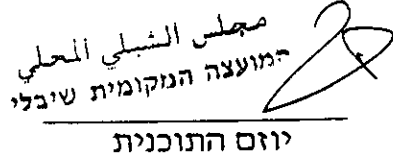 مجلس الشبلي المحلي
המועצה המקומית שיבלי
יוזם התוכנית